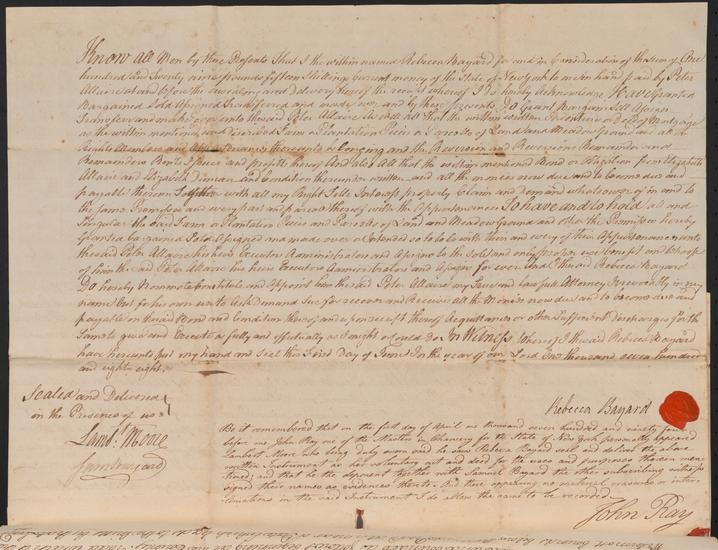 Know all Men by these Presents That I the within named Rebecca Bayard for and in Consideration of the sum of One
hundred and Twenty nine pounds fifteen Shillings Current money of the State of New York to me in hand paid by Peter
Allaire at and before the ensealing and delivery hereof the receipt whereof I do hereby Acknowledge Have Granted
Bargained Sold Assigned Transferred and made over and by these presents Do Grant Bargain Sell Assign
Transfer and make over unto the said Peter Allaire All that the within written Indenture or Deed of Mortgage
as the within mentioned and described Farm or Plantation Piece or Parcells of Land and Meadow Ground and all
Rights Members and Appurtenances thereunto belonging and the Reversion and Reversions Remainder and
Remainders Rents Issues and profits thereof And also all that the within mentioned Bond or Obligation from
Allaire and Condition thereunder written and all the monies now due and to become due and
payable thereon Together with all my Right Title Interest property Claim and demand whatsoever of in and to
the same Premises and every part and parcel thereof with the Appurtenances To have and to hold all and
Singular the said Farm or Plantation Pieces and Parcells of Land and Meadow Ground and other the Premises hereby
Granted bargained Sold Assigned and made over or Intended so to be with their and every of their Appurtenances unto
the said Peter Allaire his heirs Executors Administrators and Assigns to the sole and only proper use benefit and behoof
of him the said Peter Allaire his heirs Executors Administrators and Assigns for ever And I the said Rebecca Bayard
Do hereby Nominate Constitute and Appoint him the said Peter Allaire my true and lawfull Attorney Irrevocably in my
name but for his own use to Ask Demand Sue for recover and Receive all the Monies now due and to become due and
payable on the said Bond and Condition thereof and upon receipt thereof Acquittances or other Sufficient discharges for the
Same to give and Execute as fully and effectually as I might or Could do In Witness whereof I the said Rebecca Bayard
have hereunto put my hand and Seal this First Day of June In the year of our Lord One thousand seven hundred
and eighty eight.
Sealed and Delivered
in the Presence of us
Lamb.t Moore
Sam Bayard
Rebecca Bayard
Be it remembered that on the first day of April one thousand seven hundred and ninety four
before me John Ray one of the Masters in Chancery for the State of New York personally appeared
Lambert Moore who being duly sworn said he saw Rebecca Bayard seal and deliver the above
written Instrument as her voluntary act and deed for the uses and purposes therein men
tioned; and that he the deponent together with Samuel Bayard the other subscribing witness
signed their names as evidences thereto. And there appearing no material erasures or inter-
lineations in the said Instrument I do allow the same to be recorded.
John Ray